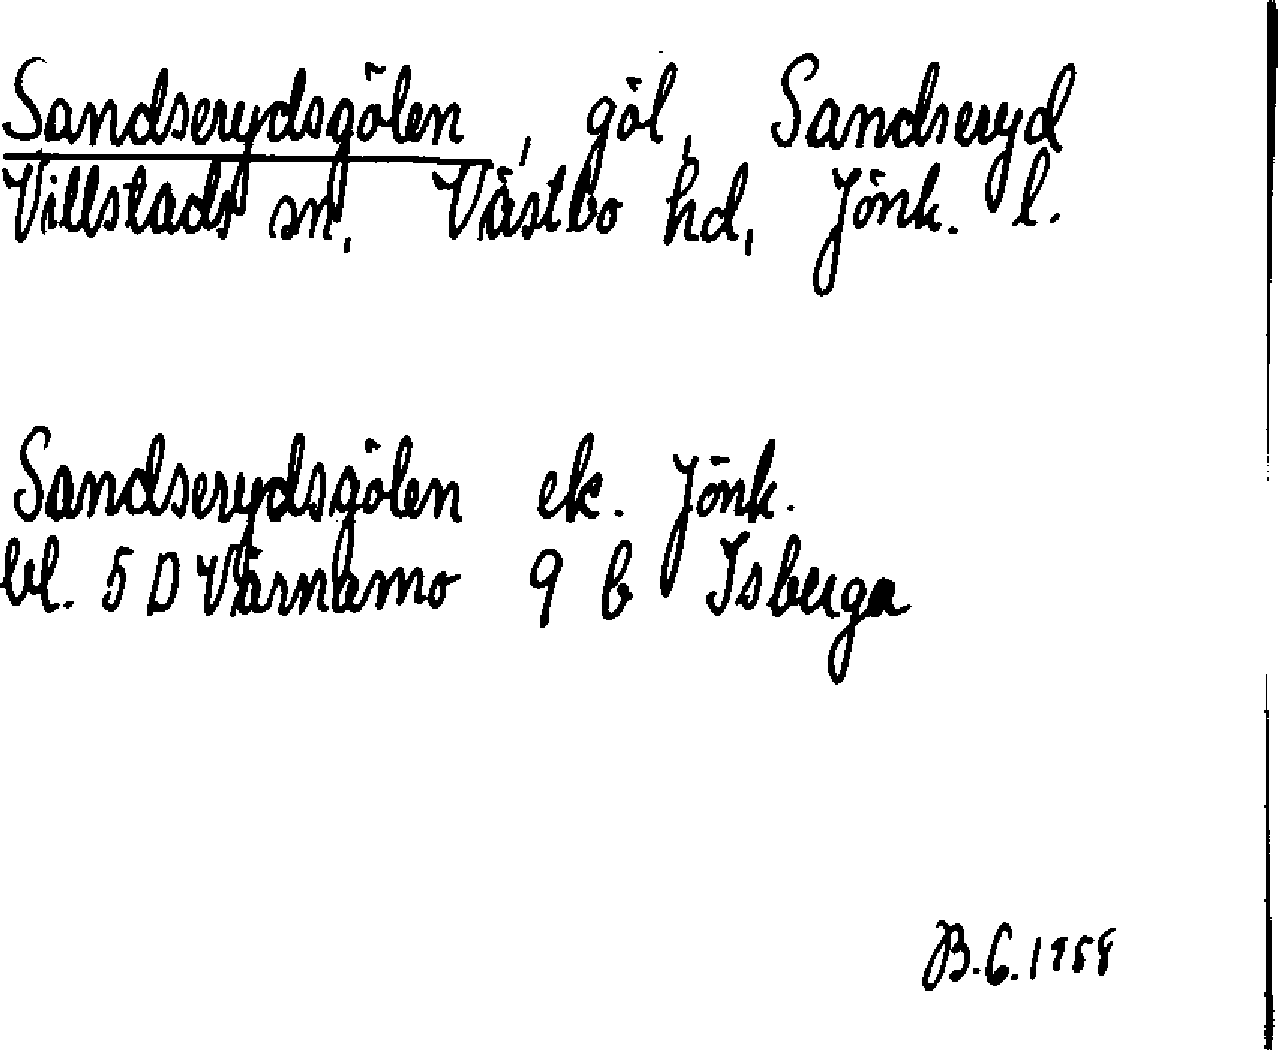 Sandserydsgölen, göl, Sandseryd
Villstads sn, Västbo hd, Jönk. l.
Sandserydsgölen ek. Jönk.
bl. 5 D Värnamo 9 b Isberga
B.G. 1958